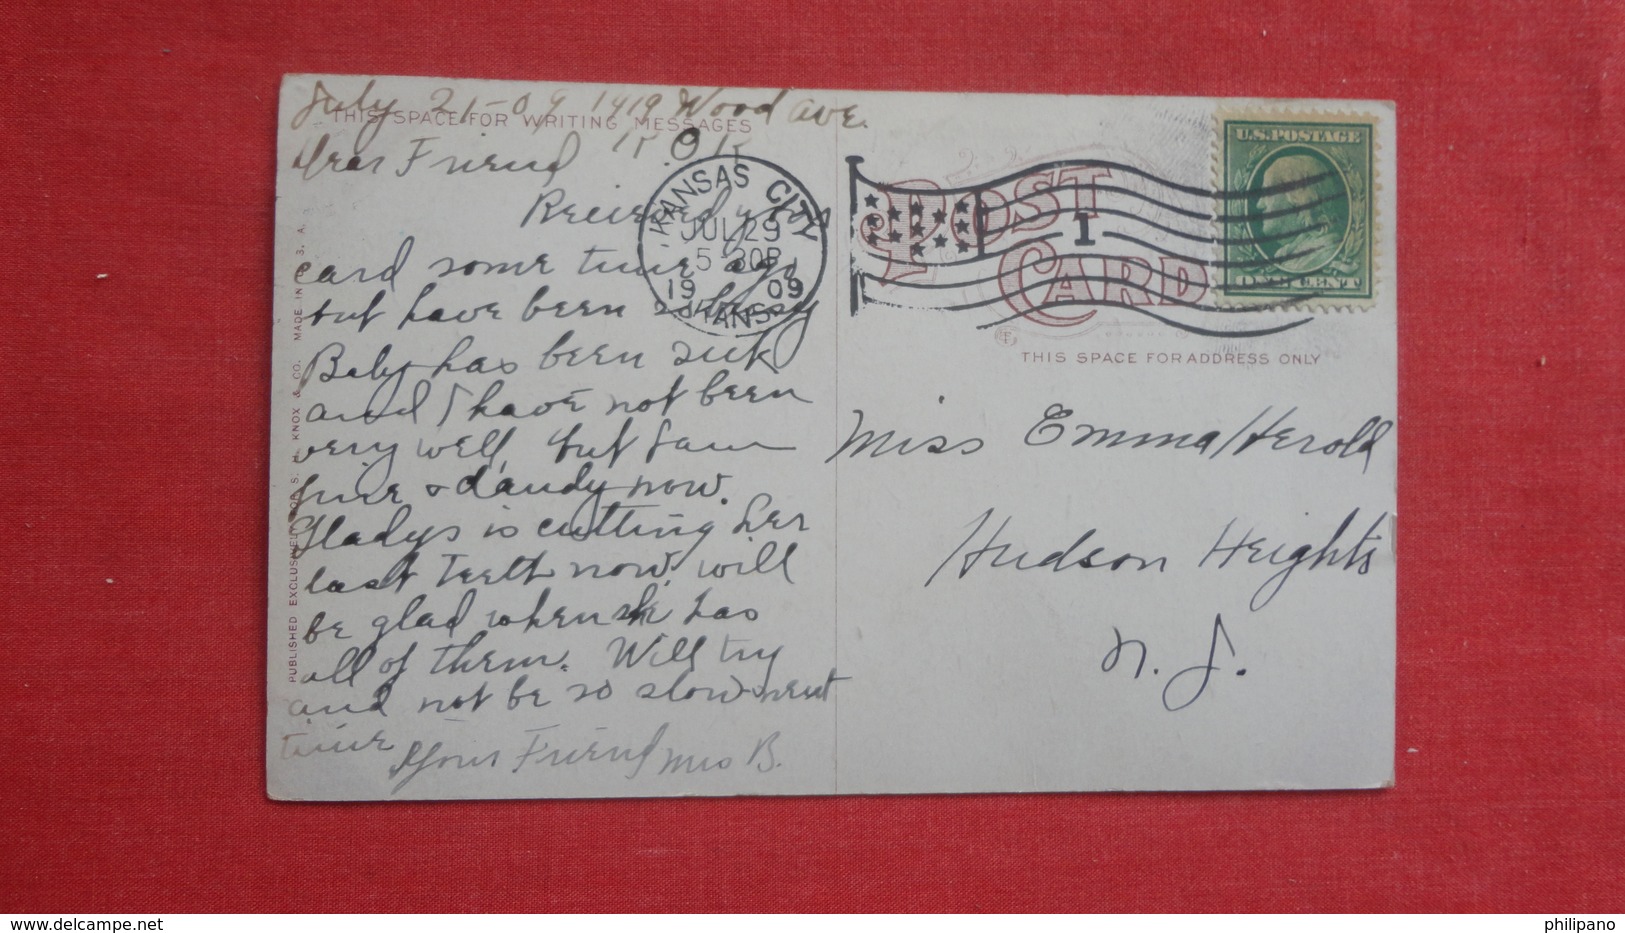 July 21-09 1419 Wood ave.
THIS SPACE FOR WRITING MESSAGES
Dear Friend
Recieved your
card some time ago
but have been so busy
Baby has been sick
and I have not been
very well, but I am
fine & dandy now.
Gladys is cutting her
last teeth now, will
be glad when she has
all of them. Will try
and not be so slow next
time Your Friend Mrs B.
PUBLISHED EXCLUSIVELY FOR S. H. KNOX & CO. MADE IN U. S. A.
KANSAS CITY
JUL 29
5-30P
19 09
KANS.
1
U.S. POSTAGE
ONE CENT
POST CARD
THIS SPACE FOR ADDRESS ONLY
Miss Emma Herold
Hudson Heights
N. J.
delcampe.net
philipano